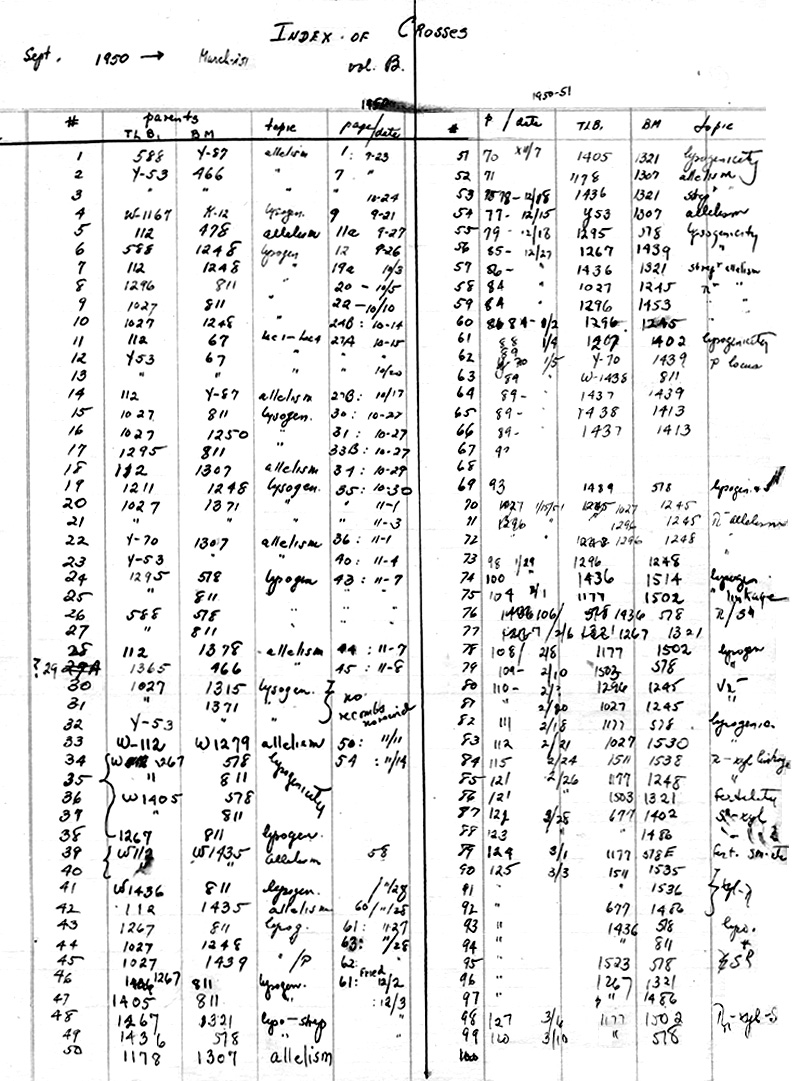 INDEX OF CROSSES
Sept. 1950 → March-i51 vol. B.
1950
# parents TLB1 BM topic page/date
1 588 Y-87 allelism 1: 9-23
2 Y-53 466 " 7 "
3 " " " " 10-24
4 W-1167 K-12 lysogen. 9 9-21
5 112 478 allelism 11a 9-27
6 588 1248 lysogen 12 9-26
7 112 1248 " 19a 10/3
8 1296 811 " 20 - 10/5
9 1027 811 " 22 - 10/10
10 1027 1248 " 24B: 10-14
11 112 67 lac1-lac4 27A 10-15
12 Y53 67 " " "
13 " " " " 10/20
14 112 Y-87 allelism 27B: 10/17
15 1027 811 lysogen. 30: 10-27
16 1027 1250 " 31: 10-27
17 1295 811 " 33B: 10-27
18 112 1307 allelism 34: 10-29
19 1211 1248 lysogen. 35: 10-30
20 1027 1371 " " 11-1
21 " " " " 11-3
22 Y-70 1307 allelism 36: 11-1
23 Y-53 " " 40: 11-4
24 1295 578 lysogen 43: 11-7
25 " 811 " " "
26 588 578 " " "
27 " 811 " " "
28 112 1378 allelism 44: 11-7
? 29 29A 1365 466 " 45: 11-8
30 1027 1315 lysogen.
31 " 1371 " no recombs
32 Y-53 " "
33 W-112 W1279 allelism 50: 11/11
34 W 1267 578 lysogenicity 54: 11/14
35 " 811
36 W1405 578
37 " 811
38 1267 811 lysogen.
39 W112 W1435 allelism 58
40 " "
41 W1436 811 lysogen. /"/28
42 112 1435 allelism 60/"/28
43 1267 811 lysog. 61: 11-27
44 1027 1248 " 63: "/28
45 1027 1439 "/P 62:
46 1267 811 lysogen. 61: 12/2
47 1405 811 " : 12/3
48 1267 1321 lyso-strep "
49 1436 578 " "
50 1178 1307 allelism
1950-51
# P / date TLB1 BM topic
51 70 XII/7 1405 1321 lysogenicity
52 71 1178 1307 allelism
53 78 - 12/18 1436 1321 strep "
54 77 - 12/15 Y53 1307 allelism
55 79 - 12/18 1295 578 lysogenicity
56 85 - 12/27 1267 1439 "
57 86 - " 1436 1321 strep allelism
58 84 " 1027 1245 "
59 84 " 1296 1453 "
60 84 - 1/2 1296 1245 "
61 88 1/4 1407 1402 lysogenicity
62 89 1/5 Y-70 1439 P locus
63 89 " W-1438 811
64 89 - " 1437 1439
65 89 - " 1438 1413
66 89 - 1437 1413
67 92
68
69 93 1489 578 lysogen.
70 1027 1/15/51 1245 1027 1245
71 1296 " 1296 1245 allelism
72 " 1248 1296 1248 "
73 98 1/29 1296 1248
74 100 " 1436 1514 lysogen.
75 104 2/1 1177 1502 " linkage
76 106/ 1436 578
77 1267 / 2/6 1267 1321
78 108/ 2/8 1177 1502 lysogen
79 109 - 2/10 1503 578 "
80 110 - 1296 1245
81 " 2/20 1027 1245 "
82 111 2/18 1177 578 lysogenic.
83 112 2/21 1027 1530 "
84 115 2/24 1511 1538 -xyl linkage
85 121 2/26 1177 1248 "
86 121 " 1503 1321 fertility
87 121 2/28 677 1402 -xyl
88 123 " 1486
89 124 3/1 1177 578E fert.
90 125 3/3 1511 1535
91 " " 1536
92 " 677 1486
93 " 1436 578 lyso.
94 " " 811 +
95 " 1523 578
96 " 1267 1321
97 " " 1486
98 127 3/6 1177 1502 -xyl-S
99 110 3/10 " 578
100